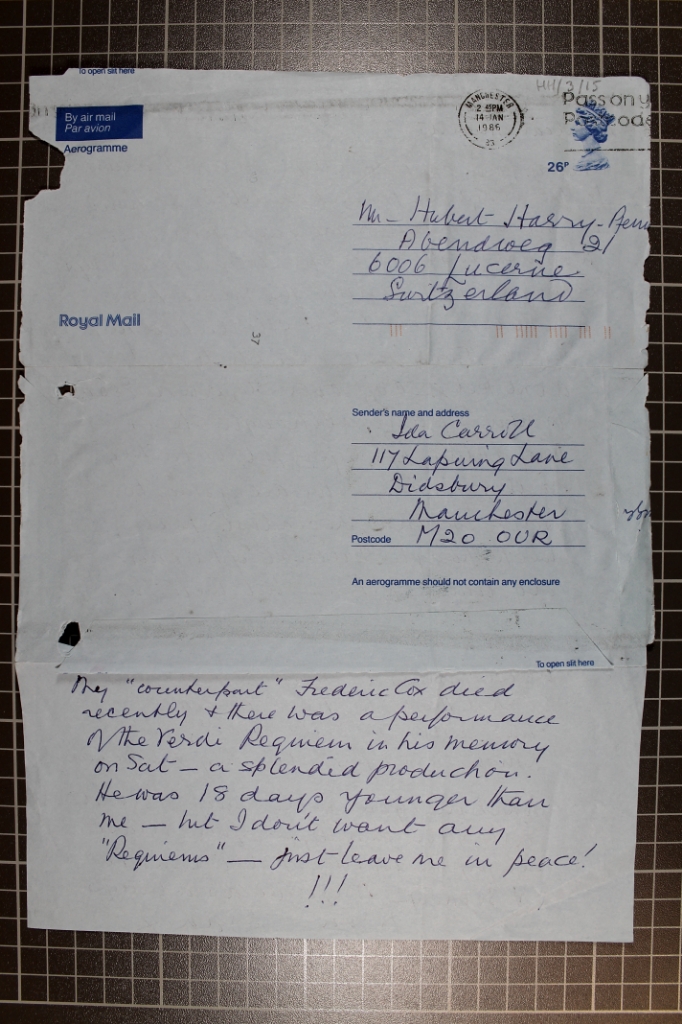 To open slit here
HH/3/15
By air mail
Par avion
Aerogramme
MANCHESTER
2 PM
14 JAN
1986
Pass on y
P code
26P
Mr Hubert Harry-
Abendweg 2
6006 Lucerne
Switzerland
Royal Mail
37
Sender's name and address
Ida Carroll
117 Lapwing Lane
Didsbury
Manchester
Postcode M20 OUR
An aerogramme should not contain any enclosure
To open slit here
My "counterpart" Frederic Cox died
recently & there was a performance
of the Verdi Requiem in his memory
on Sat — a splended production.
He was 18 days younger than
me — but I don't want any
"Requiems" — just leave me in peace!
!!!